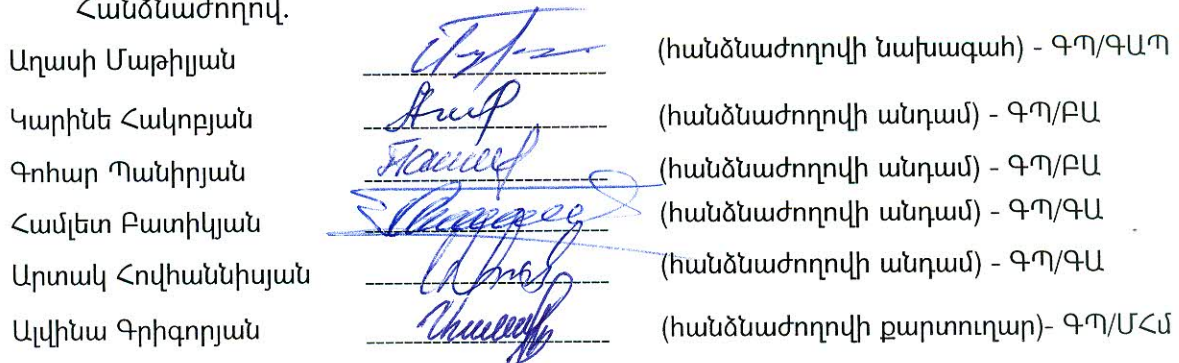 Հանձնաժողով.
Աղասի Մաթիլյան (հանձնաժողովի նախագահ) - ԳՊ/ԳԱՊ
Կարինե Հակոբյան (հանձնաժողովի անդամ) - ԳՊ/ԲԱ
Գոհար Պանիրյան (հանձնաժողովի անդամ) - ԳՊ/ԲԱ
Համլետ Բատիկյան (հանձնաժողովի անդամ) - ԳՊ/ԳԱ
Արտակ Հովհաննիսյան (հանձնաժողովի անդամ) - ԳՊ/ԳԱ
Ալվինա Գրիգորյան (հանձնաժողովի քարտուղար)- ԳՊ/ՄՀմ